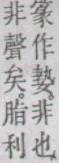 篆作勢、非也、
非聲矣。脂利